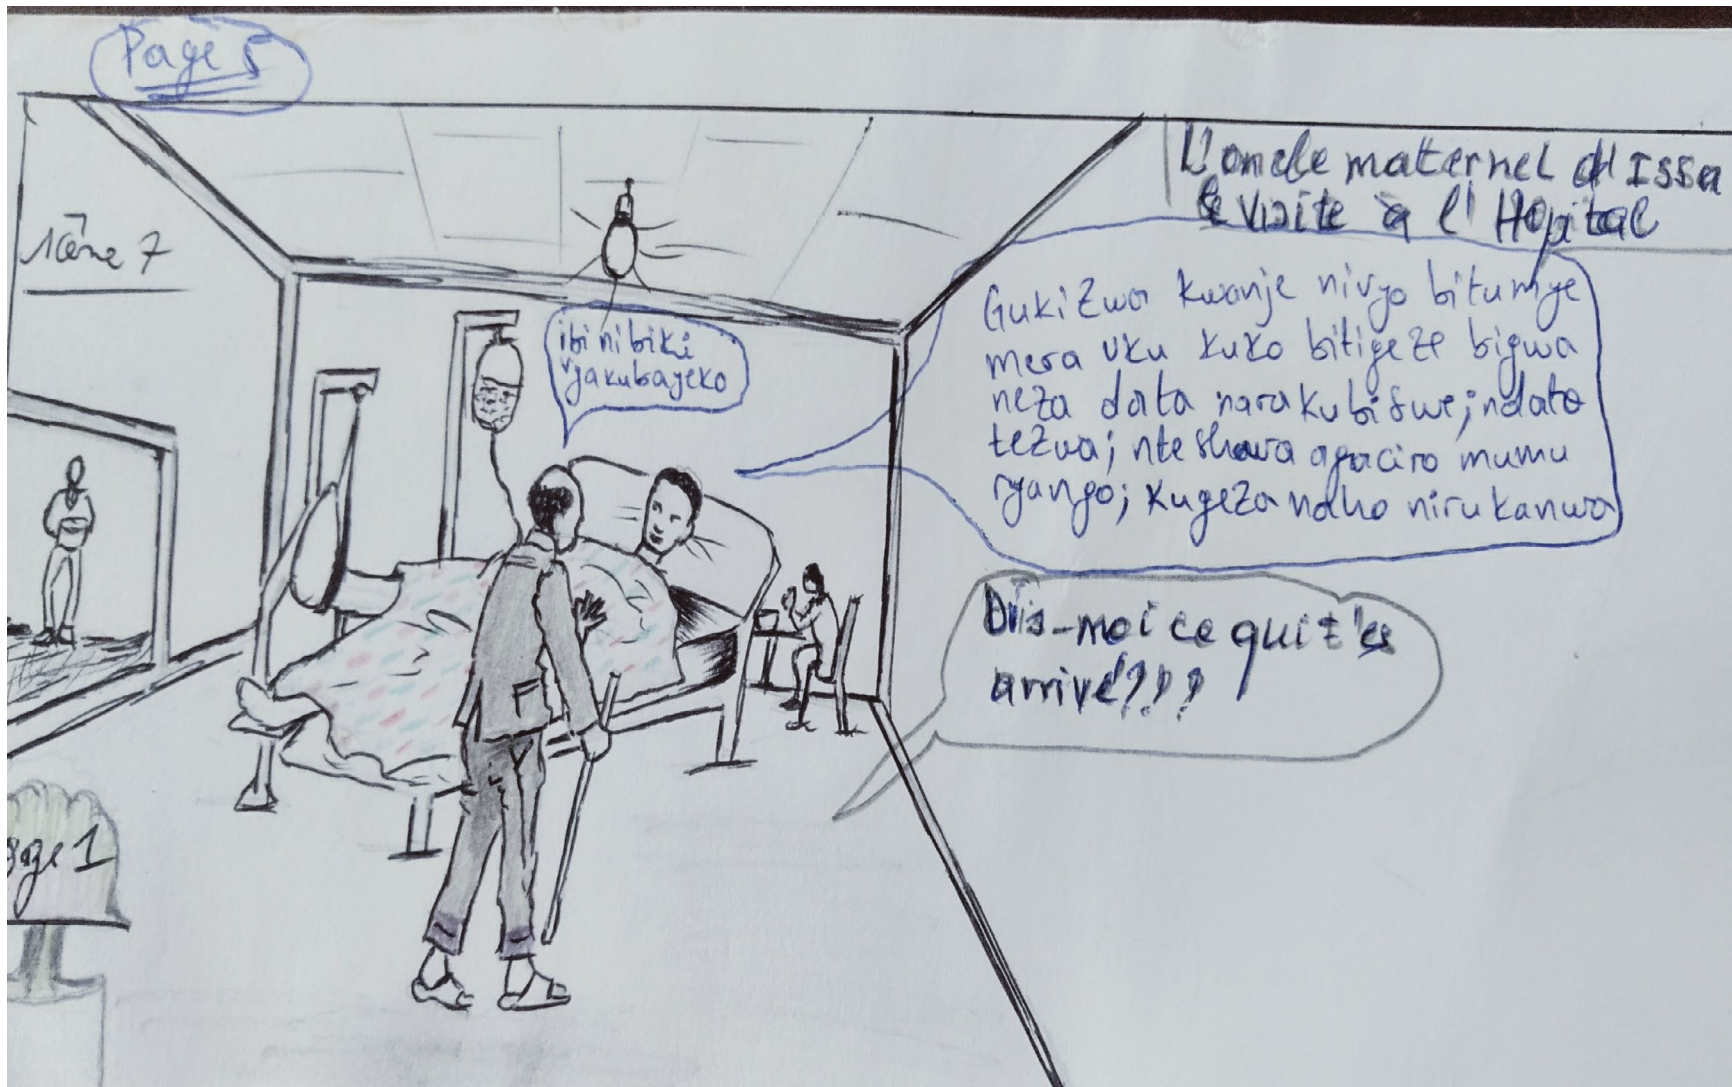 Page 5
L'oncle maternel d'Issa
le visite à l'Hopital
scène 7
ibi ni biki
vyakubayeko
Gukizwa kwanje nivyo bitumye
mera uku kuko bitigeze bigwa
neza data narakubiswe; ndato
tezwa; nteshwa agaciro mumu
ryango; kugeza naho nirukanwa
Dis-moi ce qui t'es
arrivé???
age 1